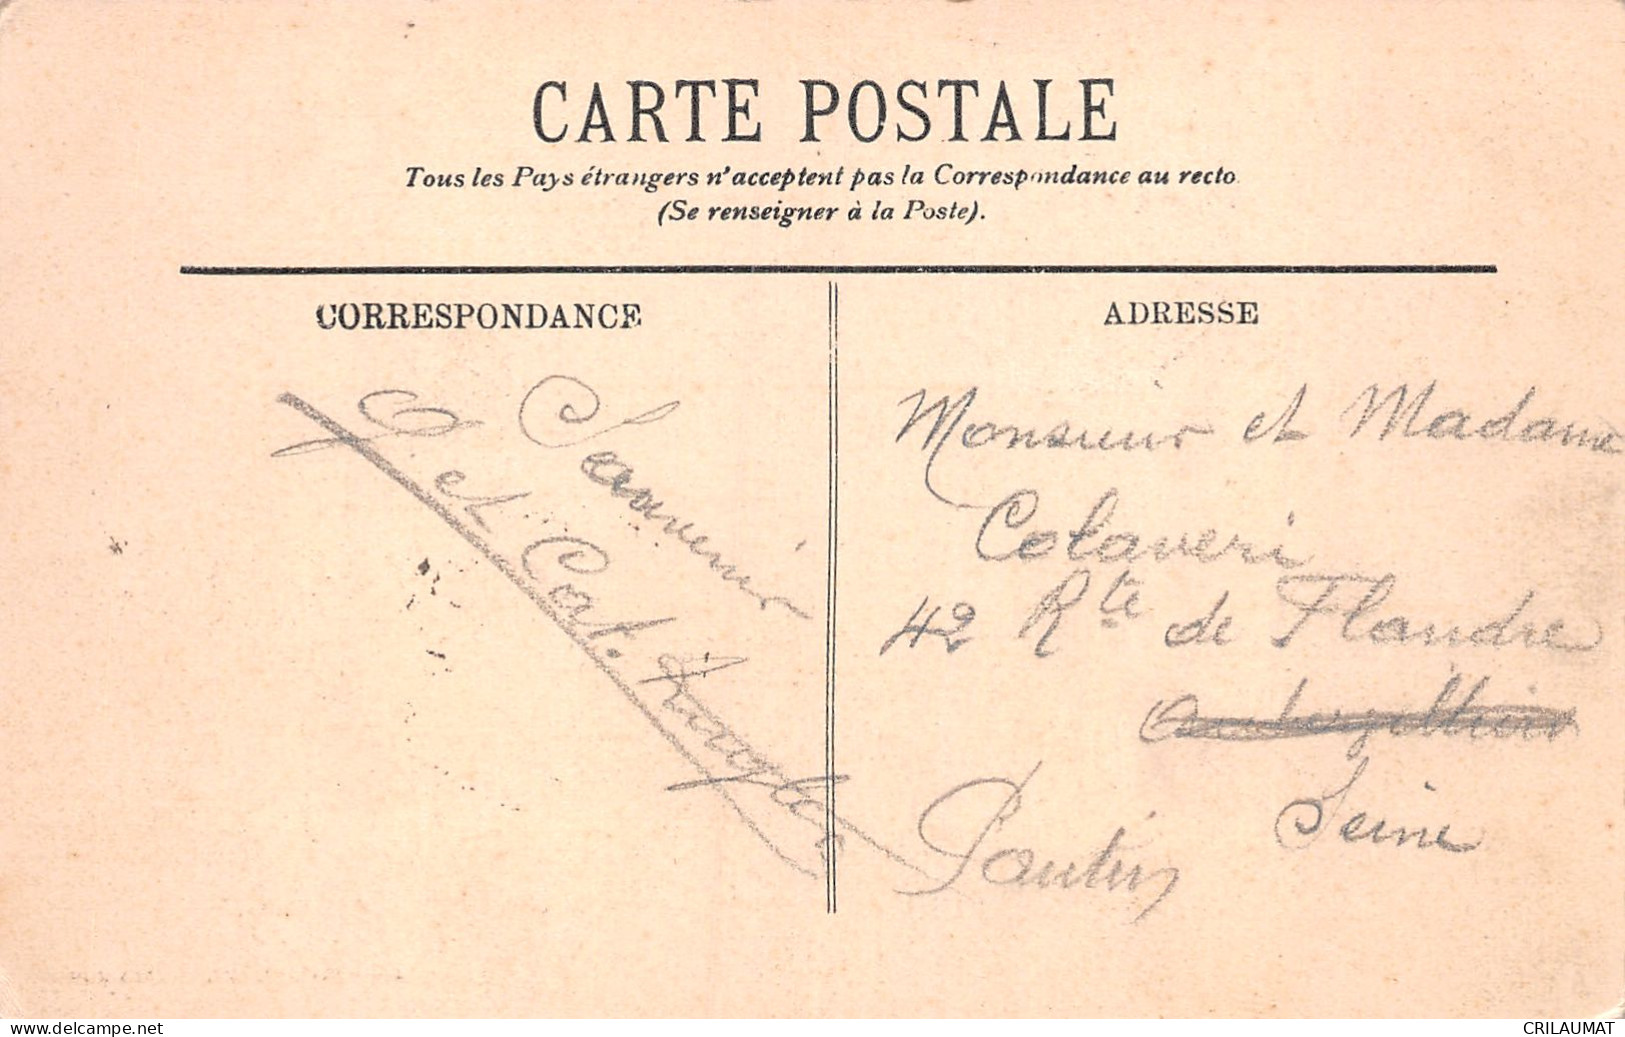 CARTE POSTALE
Tous les Pays étrangers n'acceptent pas la Correspondance au recto
(Se renseigner à la Poste).
CORRESPONDANCE
Souvenir
et Cat.
ADRESSE
Monsieur et Madame
Colaveri
42 Rte de Flandre
Aubervilliers
Seine
Pantin
www.delcampe.net
CRILAUMAT